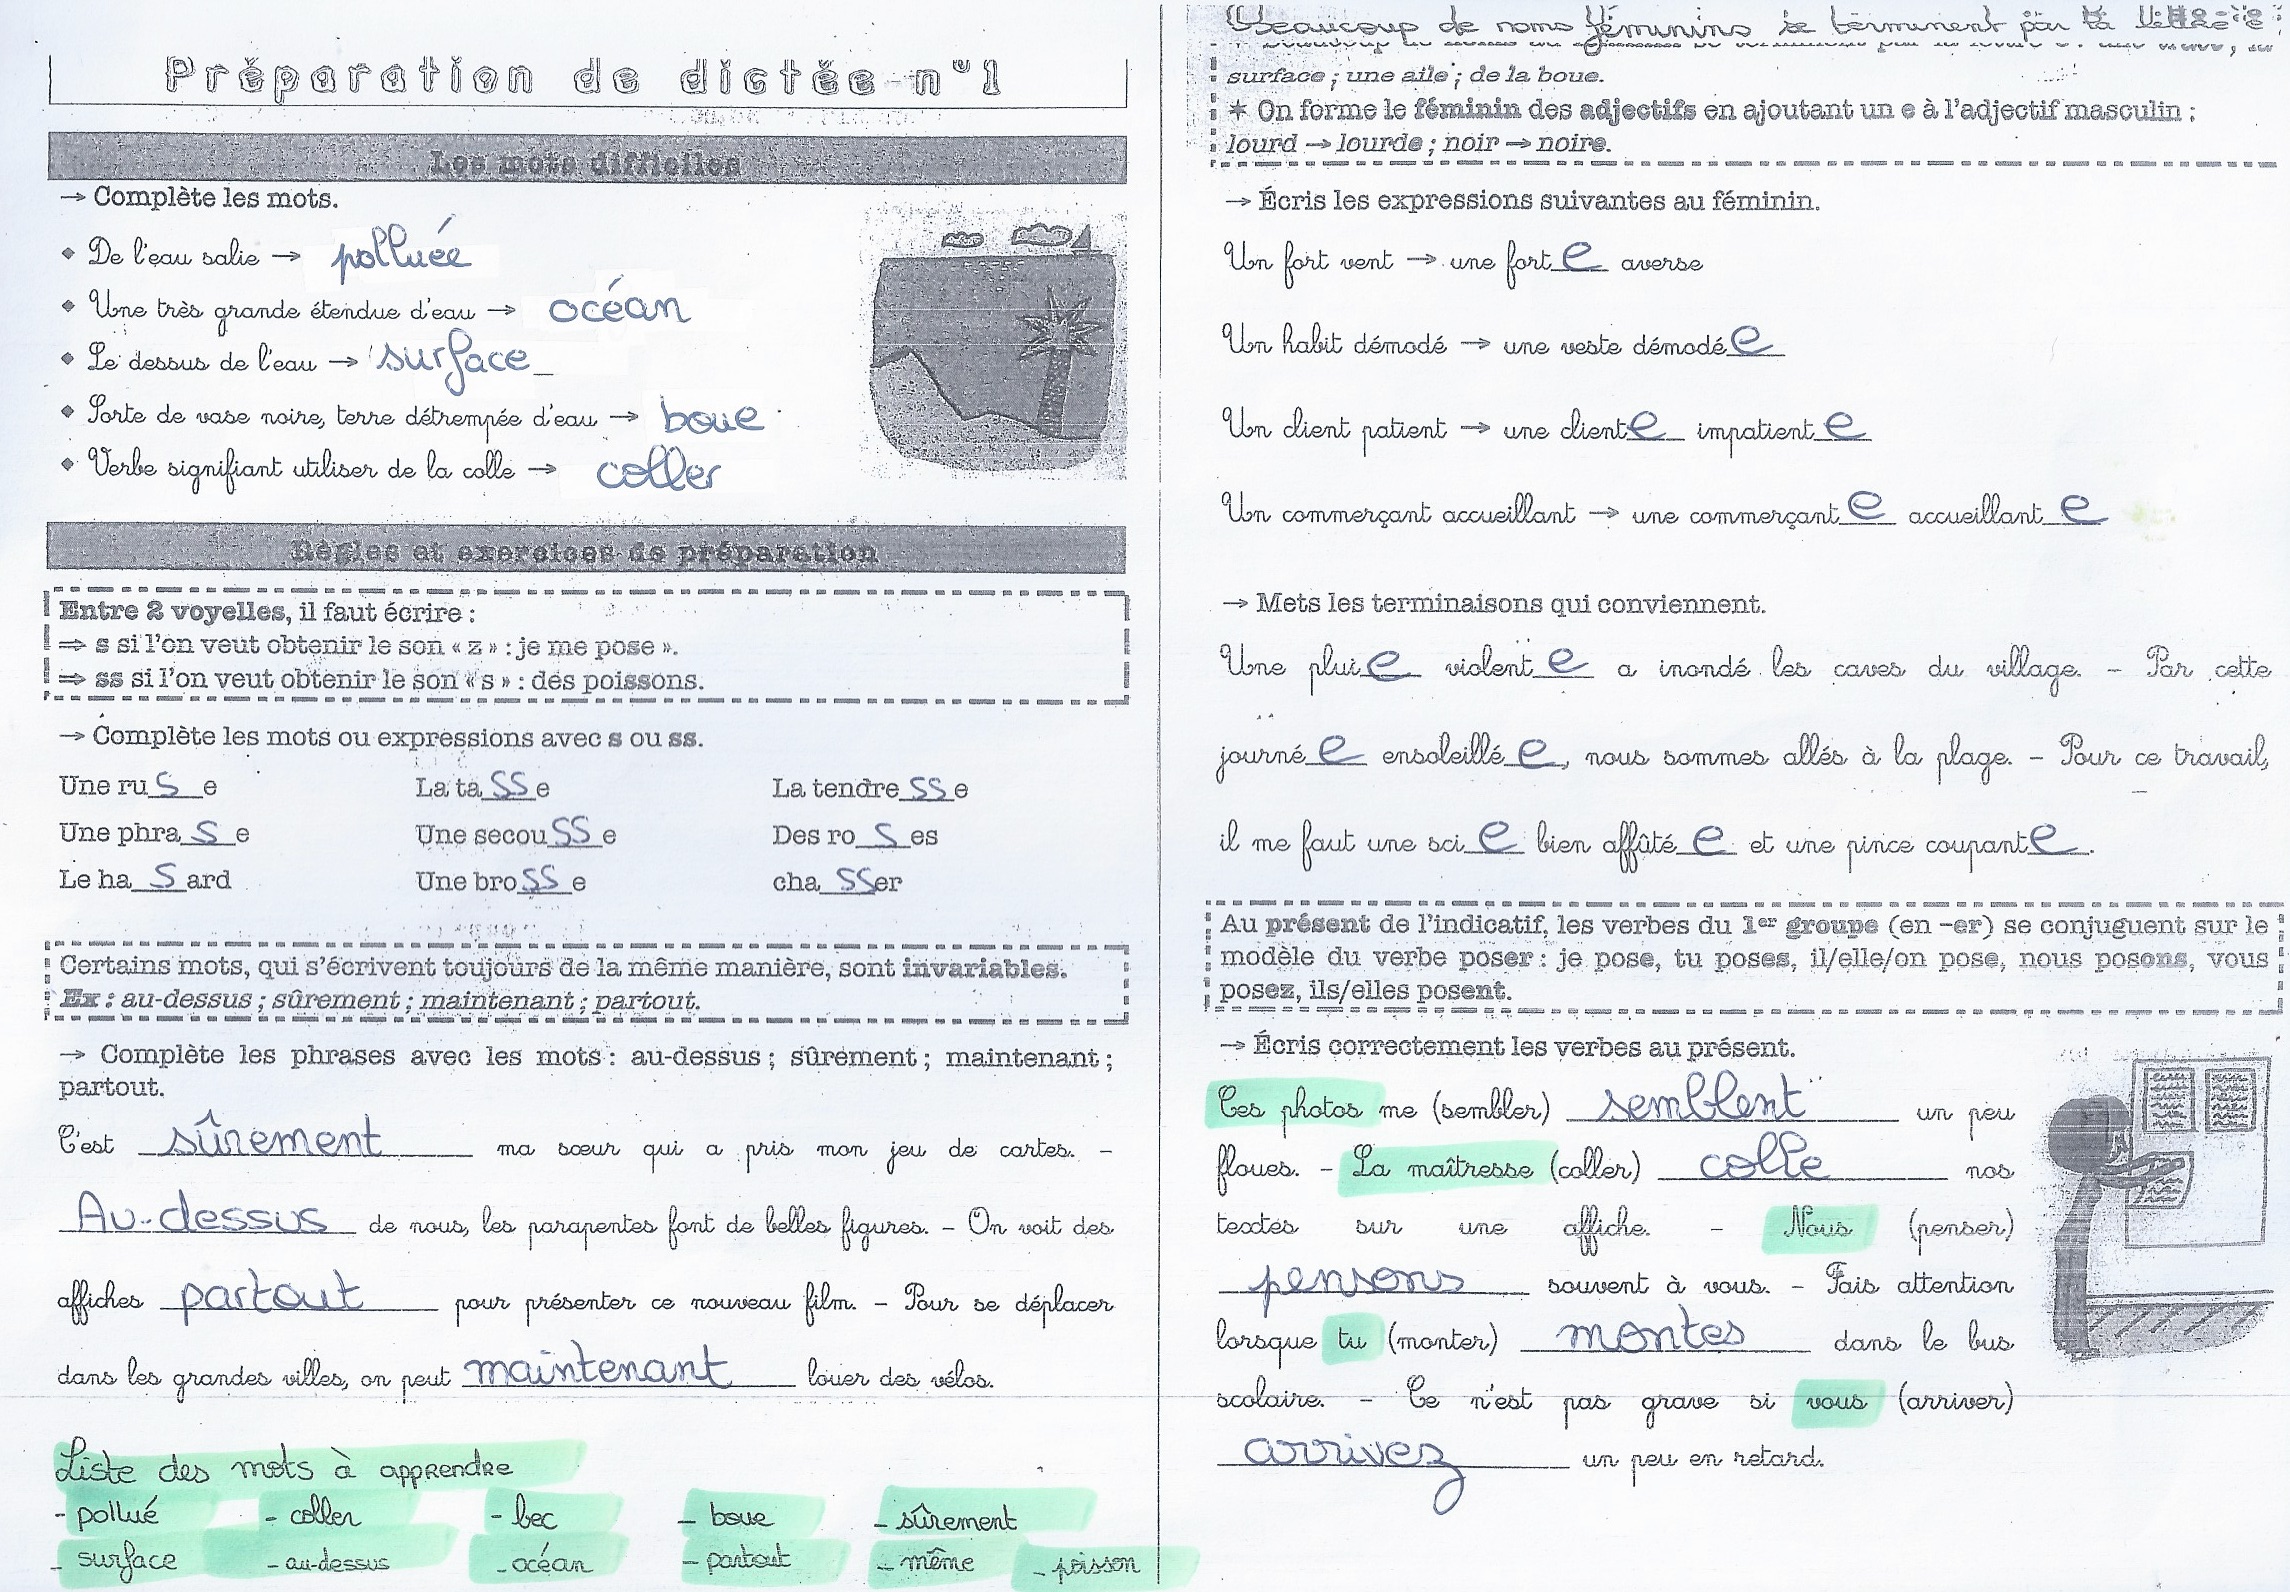 Préparation de dictée n°1
Les mots difficiles
→ Complète les mots.
◆ De l'eau salie → polluée
◆ Une très grande étendue d'eau → océan
◆ Le dessus de l'eau → surface_
◆ Sorte de vase noire, terre détrempée d'eau → boue
◆ Verbe signifiant utiliser de la colle → coller
Règles et exercices de préparation
Entre 2 voyelles, il faut écrire :
⇒ s si l'on veut obtenir le son « z » : je me pose ».
⇒ ss si l'on veut obtenir le son « s » : des poissons.
→ Complète les mots ou expressions avec s ou ss.
Une ru s e La ta ss e La tendre ss e
Une phra s e Une secou ss e Des ro s es
Le ha s ard Une bro ss e cha ss er
Certains mots, qui s'écrivent toujours de la même manière, sont invariables.
Ex : au-dessus ; sûrement ; maintenant ; partout.
→ Complète les phrases avec les mots : au-dessus ; sûrement ; maintenant ;
partout.
C'est sûrement ma sœur qui a pris mon jeu de cartes. –
Au-dessus de nous, les parapentes font de belles figures. – On voit des
affiches partout pour présenter ce nouveau film. – Pour se déplacer
dans les grandes villes, on peut maintenant louer des vélos.
Liste des mots à apprendre
- pollué - coller - bec - boue - sûrement
- surface - au-dessus - océan - partout - même - poisson
Beaucoup de noms féminins se terminent par la lettre e :
surface ; une aile ; de la boue.
✶ On forme le féminin des adjectifs en ajoutant un e à l'adjectif masculin :
lourd → lourde ; noir → noire.
→ Écris les expressions suivantes au féminin.
Un fort vent → une fort e averse
Un habit démodé → une veste démodé e
Un client patient → une client e impatient e
Un commerçant accueillant → une commerçant e accueillant e
→ Mets les terminaisons qui conviennent.
Une plui e violent e a inondé les caves du village. – Par cette
journé e ensoleillé e, nous sommes allés à la plage. – Pour ce travail,
il me faut une sci e bien affûté e et une pince coupant e.
Au présent de l'indicatif, les verbes du 1er groupe (en –er) se conjuguent sur le
modèle du verbe poser : je pose, tu poses, il/elle/on pose, nous posons, vous
posez, ils/elles posent.
→ Écris correctement les verbes au présent.
Ces photos me (sembler) semblent un peu
floues. – La maîtresse (coller) colle nos
textes sur une affiche. – Nous (penser)
pensons souvent à vous. – Fais attention
lorsque tu (monter) montes dans le bus
scolaire. – Ce n'est pas grave si vous (arriver)
arrivez un peu en retard.